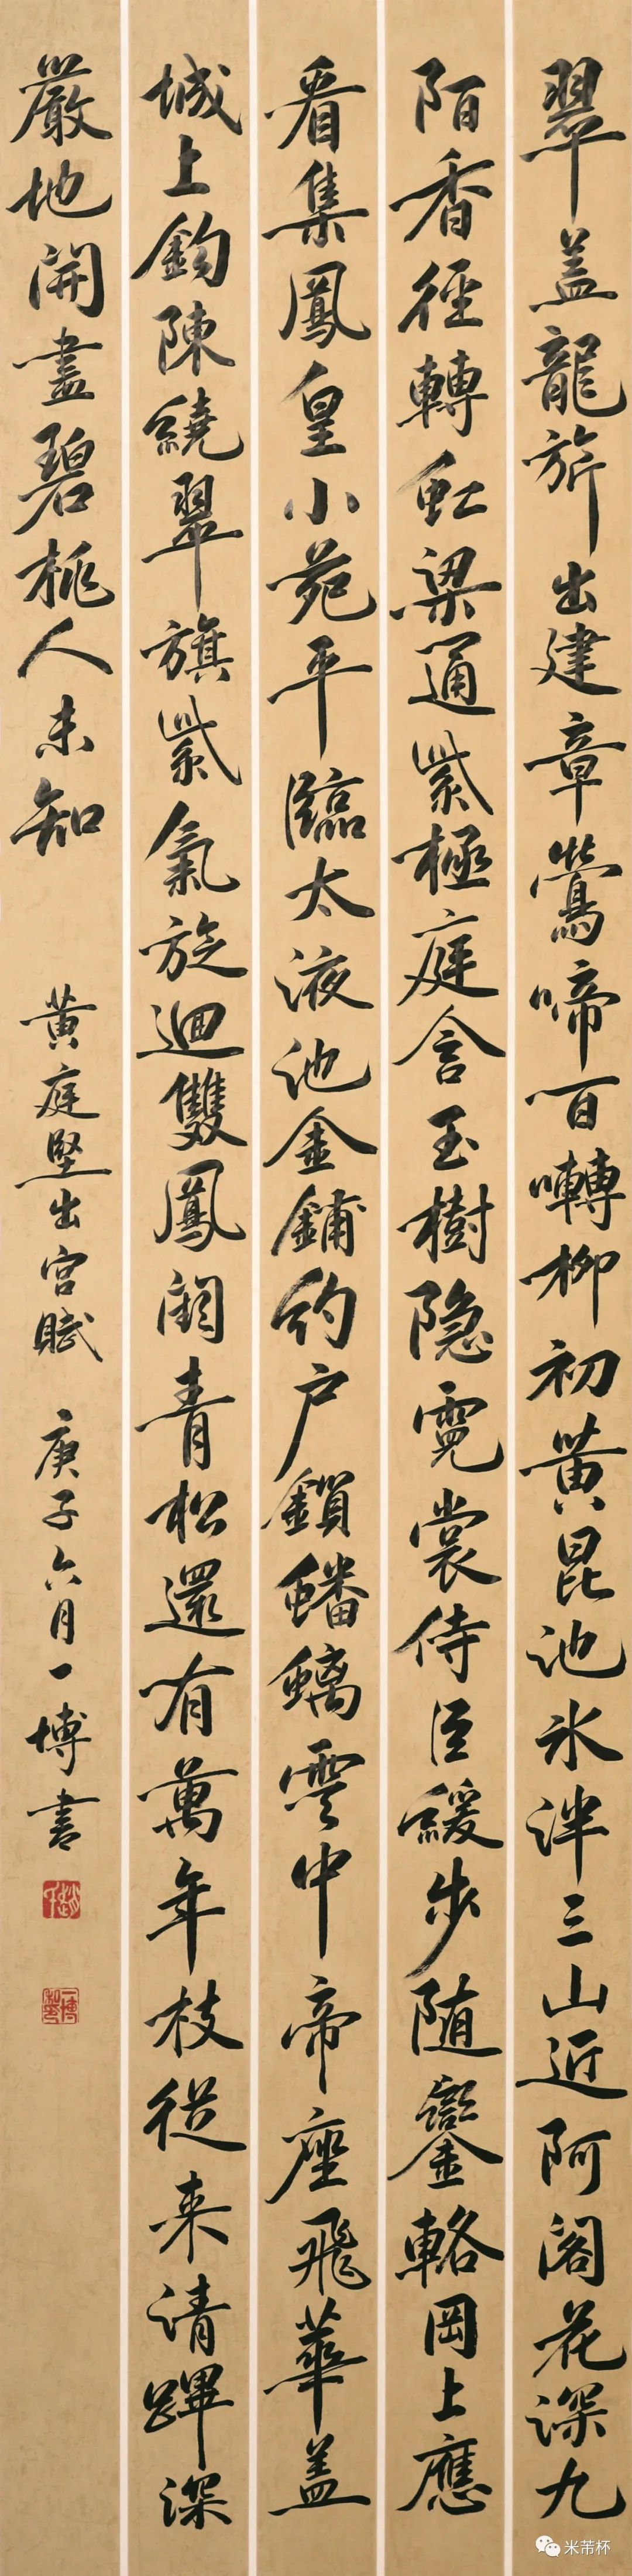 翠盖龍旂出建章鶯啼百囀柳初黄昆池氷泮三山近阿阁花深九
陌香徑轉虹梁通紫極庭含玉樹隐霓裳侍臣緩步随鑾輅岡上應
看集鳳皇小苑平臨太液池金鋪约户鎖蟠螭雲中帝座飛華盖
城上鈎陳繞翠旗紫氣旋迴雙鳳闕青松還有萬年枝從来清蹕深
嚴地開盡碧桃人未知
黄庭堅出宫賦
庚子六月一博書
米芾杯